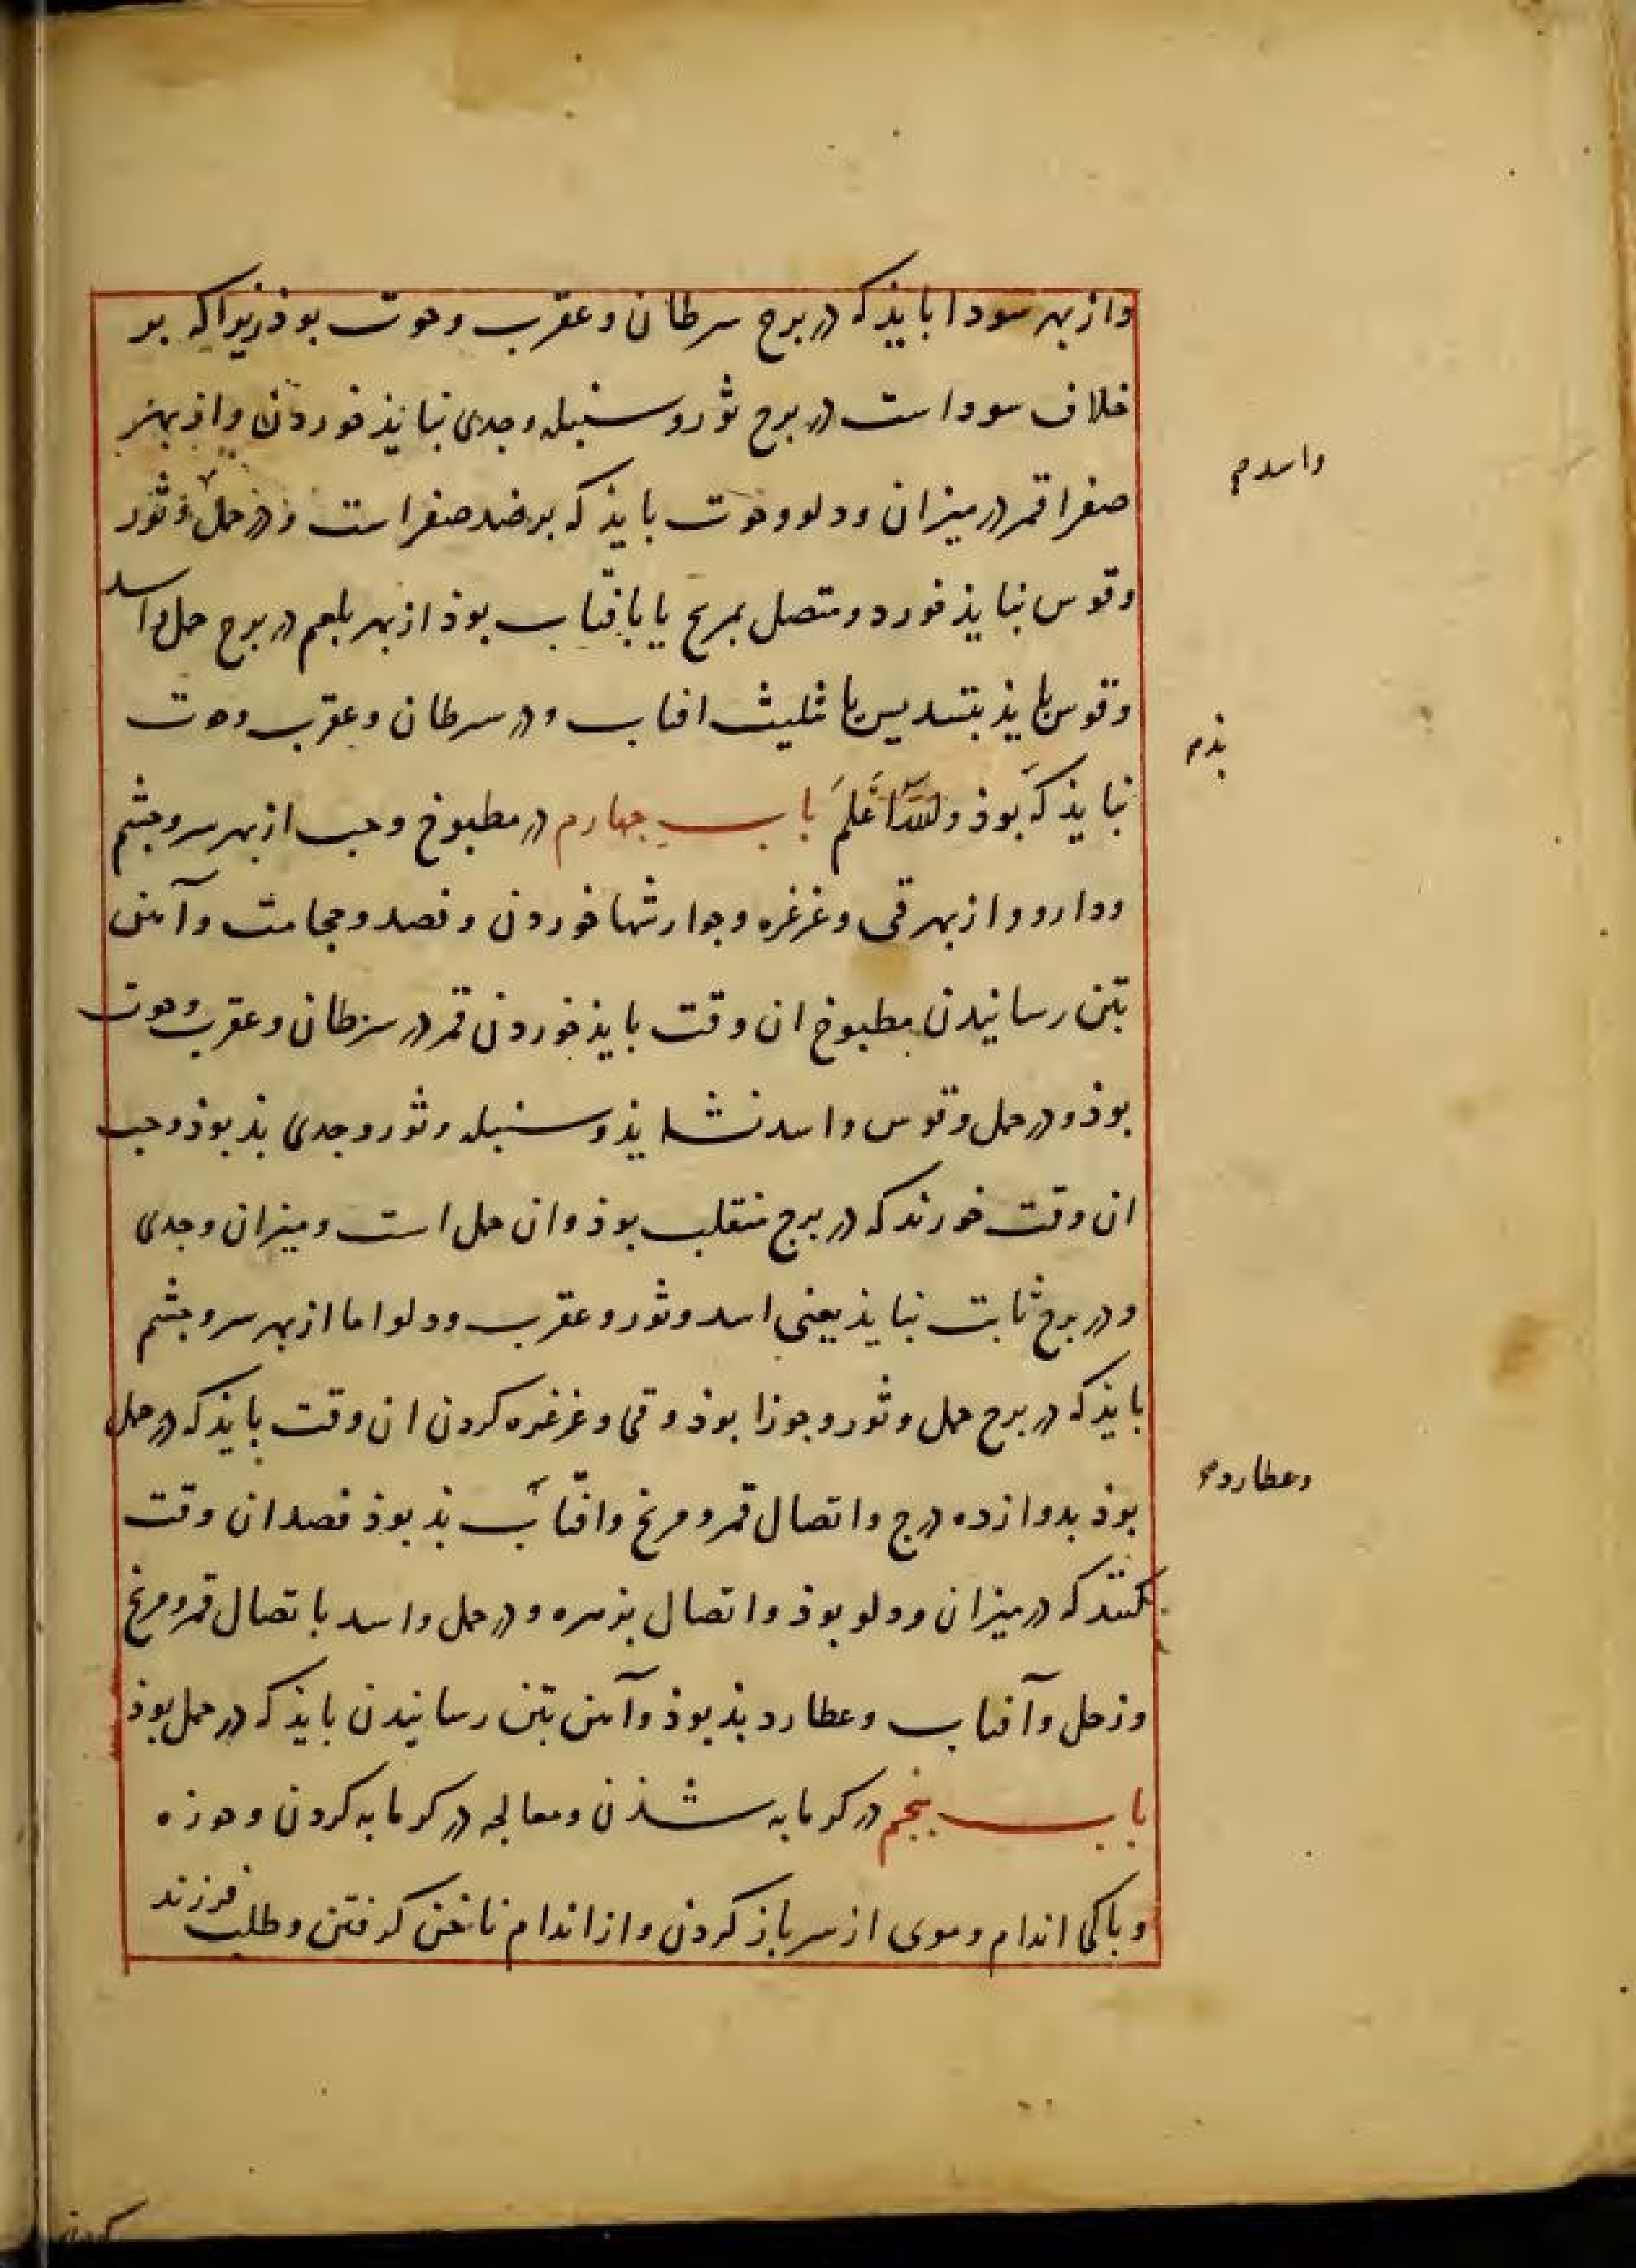 واز بهر سودا بایذ که در برج سرطان و عقرب و حوت بوذ زیرا که بر
خلاف سودا ست در برج ثور و سنبله و جدی نبایذ خوردن واز بهر
صفرا قمر در میزان ودلو وحوت بایذ که بر ضد صفراست و در حمل وثور
واسد
وقوس نبایذ خورد ومتصل بمریخ یا بافتاب بوذ از بهر بلغم در برج حمل واسد
وقوس بایذ بتسدیس یا تثلیث افتاب ودر سرطان وعقرب وحوت
نبایذ که بوذ والله اعلم باب جهارم در مطبوخ وحب از بهر سر وجشم
بذ
ودارو واز بهر قی وغرغره وجوارشها خوردن وفصد وحجامت وآهن
بتن رسانیدن مطبوخ ان وقت بایذ خوردن قمر در سرطان وعقرب وحوت
بوذ ودر حمل وقوس واسد نشایذ وسنبله وثور وجدی بذ بوذ وحب
ان وقت خورند که در برج منقلب بوذ وان حمل است ومیزان وجدی
ودر برج ثابت نبایذ یعنی اسد وثور وعقرب ودلو اما از بهر سر وجشم
بایذ که در برج حمل وثور وجوزا بوذ وقی وغرغره کردن ان وقت بایذ که در حمل
بوذ بدوازده درج واتصال قمر ومریخ وافتاب بذ بوذ فصد ان وقت
وعطارد
کنند که در میزان ودلو بوذ واتصال بزهره ودر حمل واسد باتصال قمر ومریخ
وزحل وآفتاب وعطارد بذ بوذ وآهن بتن رسانیدن بایذ که در حمل بوذ
باب بنجم در کرمابه شذن ومعالجه در کرمابه کردن وموزه
وباکی اندام وموی از سر باز کردن واز اندام ناخن کرفتن وطلب فرزند